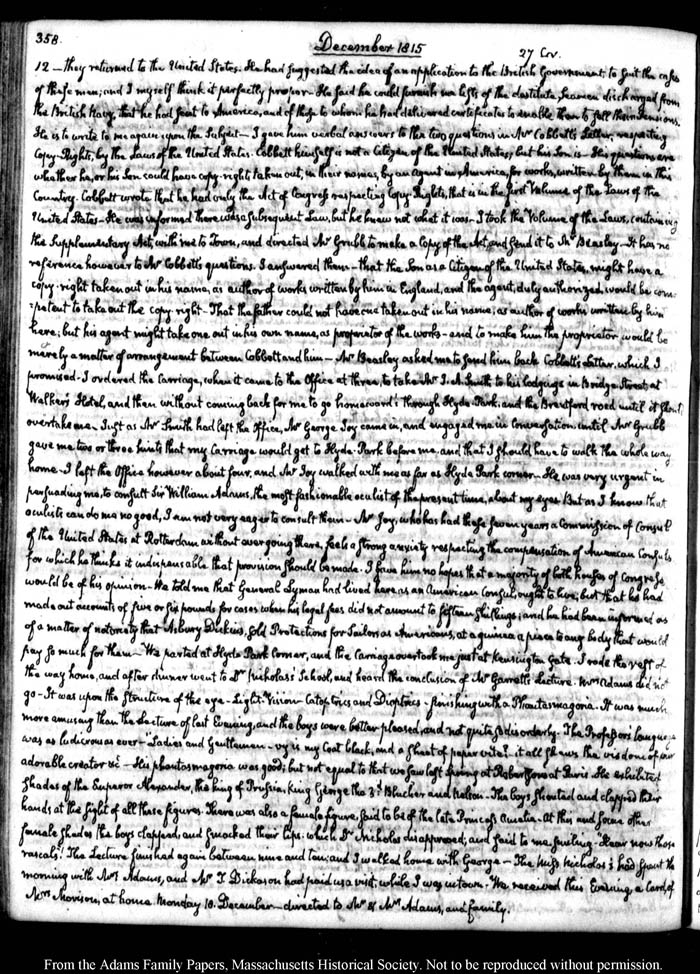 358.
December 1815
27 Cov.
12 — they returned to the United States. He had suggested the idea of an application to the British Government, to suit the cases
of these men; and I myself think it perfectly proper. He said he could furnish me lists of the destitute Seamen discharged from
the British Navy, that he had sent to America, and of those to whom he had delivered certificates to enable them to sell their Pensions.
He is to write to me again upon the Subject — I gave him verbal answers to the two questions in Mr Cobbett's Letter, respecting
Copy-Rights, by the Laws of the United States. Cobbett himself is not a Citizen of the United States; but his Son is — His questions are
whether he, or his Son could have copy-rights taken out, in their names, by an Agent in America, for works, written by them in this
Country. Cobbett wrote that he had only the Act of Congress respecting Copy Rights, that is in the first Volume of the Laws of the
United States — He was informed there was a subsequent Law, but he knew not what it was — I took the Volume of the Laws, containing
the Supplementary Act, with me to Town, and directed Mr Grubb to make a Copy of the Act, and send it to Mr Beasley — It has no
reference however to Mr Cobbett's questions. I answered them — that the Son as a Citizen of the United States, might have a
copy-right taken out in his name, as author of works written by him in England, and the agent, duly authorized, would be com-
-petent to take out the copy right — That the father could not have one taken out in his name, as author of works written by him
here; but his agent might take one out in his own name, as proprietor of the work — and to make him the proprietor would be
merely a matter of arrangement between Cobbett and him — Mr Beasley asked me to send him back Cobbett's Letter, which I
promised — I ordered the Carriage, when it came to the Office at three, to take Mr J. A. Smith to his lodgings in Bridge Street, at
Walker's Hotel, and then without coming back for me to go homewards through Hyde Park, and the Brentford road until it should
overtake me — Just as Mr Smith had left the Office, Mr George Joy came in, and engaged me in Conversation until Mr Grubb
gave me two or three hints that my Carriage would get to Hyde Park before me, and that I should have to walk the whole way
home — I left the Office however about four, and Mr Joy walked with me as far as Hyde Park corner — He was very urgent in
persuading me, to consult Sir William Adams, the most fashionable oculist of the present time, about my eyes. But as I know that
oculists can do me no good, I am not very eager to consult them — Mr Joy, who has had these seven years a Commission of Consul
of the United States at Rotterdam, without ever going there, feels a strong anxiety respecting the compensation of American Consuls
for which he thinks it indispensable that provision should be made. I gave him no hopes that a majority of both houses of Congress
would be of his opinion — He told me that General Lyman had lived here, as an American Consul ought to live; but that he had
made out accounts of five or six pounds for cases when his legal fees did not amount to fifteen shillings; and he had been informed as
of a matter of notoriety that Asbury Dickins, sold Protections for Sailors as Americans, at a guinea a piece to any body that would
pay so much for them — We parted at Hyde Park Corner, and the Carriage overtook me just at Kensington Gate. I rode the rest of
the way home, and after dinner went to Dr Nicholas's School, and heard the conclusion of Mr Garrett's Lecture. Mrs Adams did not
go — It was upon the Structure of the eye — Light — Vision — Catoptrics and Dioptrics — finishing with a Phantasmagoria. It was much
more amusing than the Lecture of last Evening, and the boys were better pleased, and not quite so disorderly. The Professor's language
was as ludicrous as ever — "Ladies and Gentlemen — vy is my Coat black, and a Sheet of paper vite? — it all shews the visdom of our
adorable creator" &c — His phantasmagoria was good; but not equal to that we saw last Spring at Robertson's at Paris. He exhibited
Shades of the Emperor Alexander, the king of Prussia, King George the 3d Blucher and Nelson — The boys shouted and clapped their
hands at the sight of all these figures. There was also a female figure, said to be of the late Princess Amelia — At this and some other
female shades the boys clapped, and smacked their lips, which Dr Nicholas disapproved; and said to me, smiling — Hear now those
rascals! The Lecture finished again between nine and ten, and I walked home with George — The Miss Nicholas's had spent the
morning with Mrs Adams, and Mr T. Dickason had paid us a visit, while I was in town. We received this Evening, a Card of
Mrs Morison, at home Monday 18. December — directed to Mr & Mrs Adams, and family.
From the Adams Family Papers, Massachusetts Historical Society. Not to be reproduced without permission.